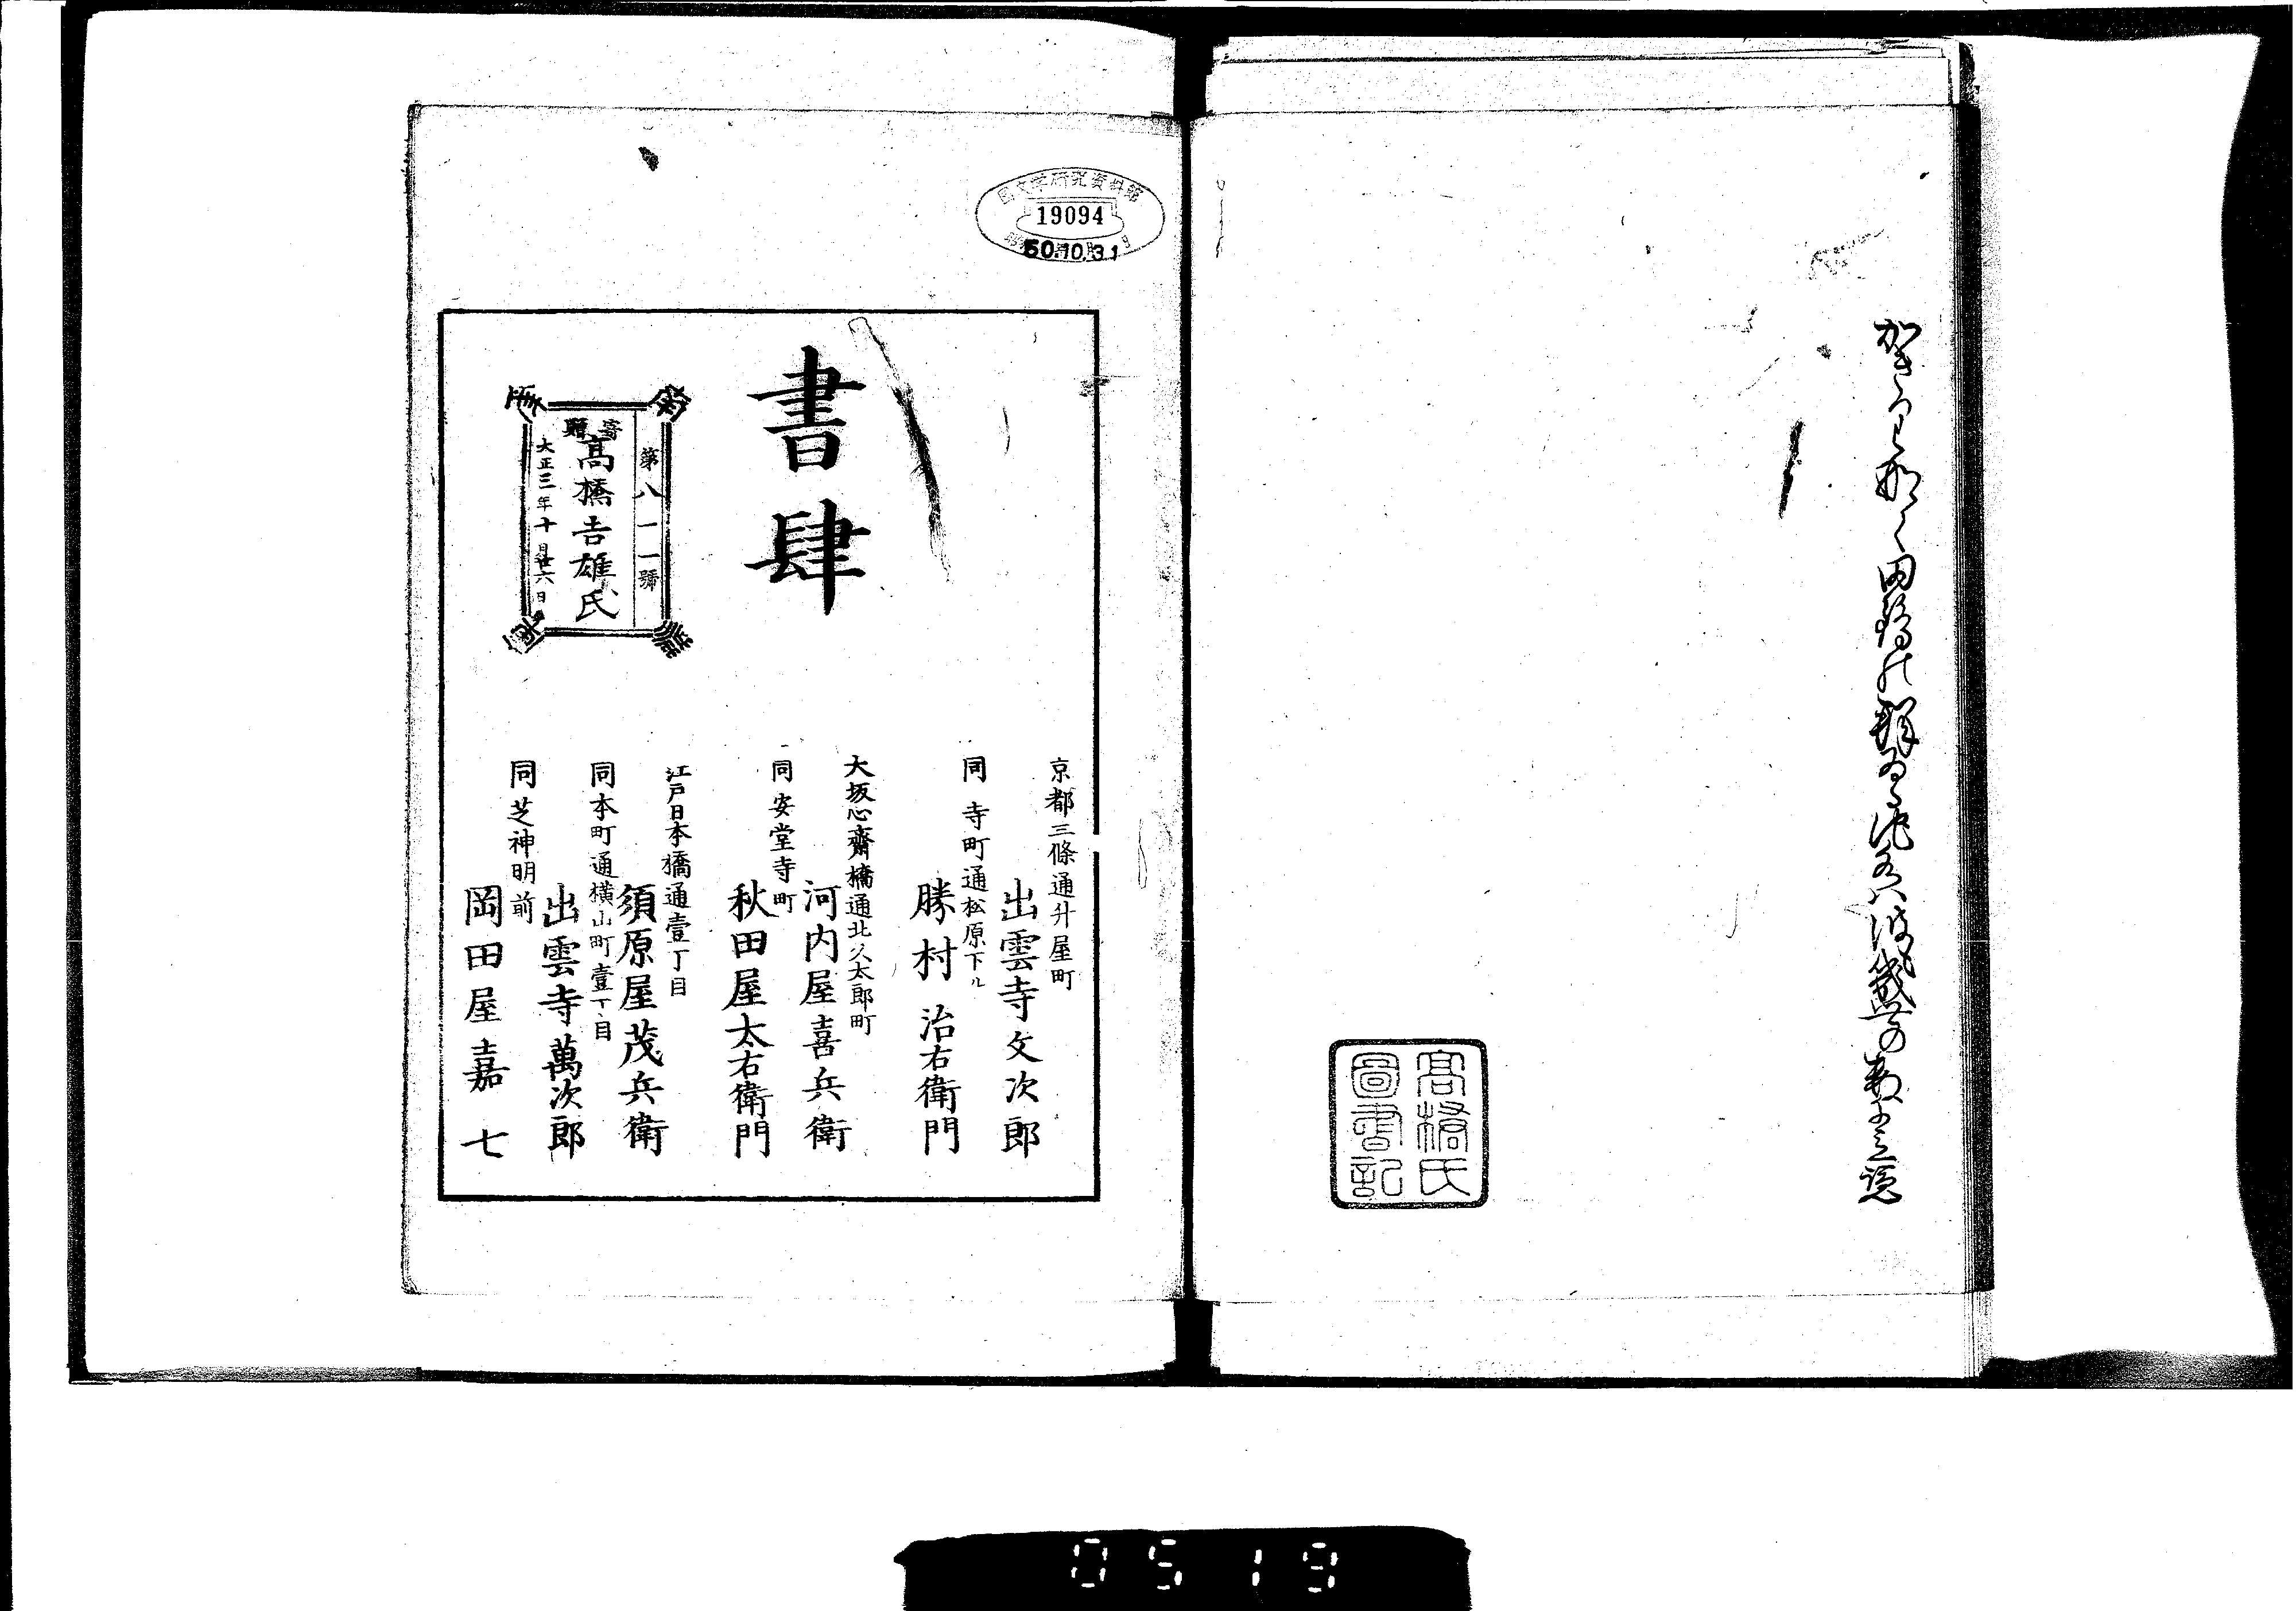 高橋氏
圖書記
国文学研究資料館
19094
50.10.31
書肆
京都三條通升屋町
出雲寺文次郎
同寺町通松原下ル
勝村治右衛門
大坂心齋橋通北久太郎町
河内屋喜兵衛
同安堂寺町
秋田屋太右衛門
江戸日本橋通壹丁目
須原屋茂兵衛
同本町通横山町壹丁目
出雲寺萬次郎
同芝神明前
岡田屋嘉七
第八一一號
寄贈
髙橋吉雄氏
大正三年十月廿六日
0519